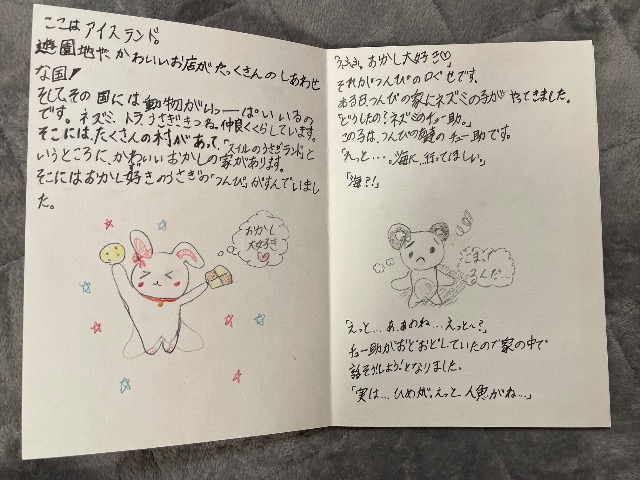 ここはアイスランド。
遊園地や、かわいいお店がたっくさんのしあわせ
な国!
そして、その国には動物がいっーぱいいるの
です。ネズミ、トラ、うさぎ、きつね。仲良くくらしています。
そこには、たくさんの村があって、「スイルのうさぎランド」と
いうところに、かわいいおかしの家があります。
そこにはおかし好きのうさぎの「つんぴ」がすんでいまし
た。
おかし
大好き
「ふふふ。おかし大好き♡」
それがつんぴの口ぐせです。
ある日、つんぴの家にネズミの子がやってきました。
「どうしたの?ネズミのチュー助。」
この子は、つんぴの親友のチュー助です。
「えっと…。海に、行ってほしい。」
「海?!」
こまって
るんだ…
「えっと…あ、あのね…えっと〜?」
チュー助がおどおどしていたので家の中で
話そがしよう!となりました。
「実は…ひめが。えっと、人魚がね…」